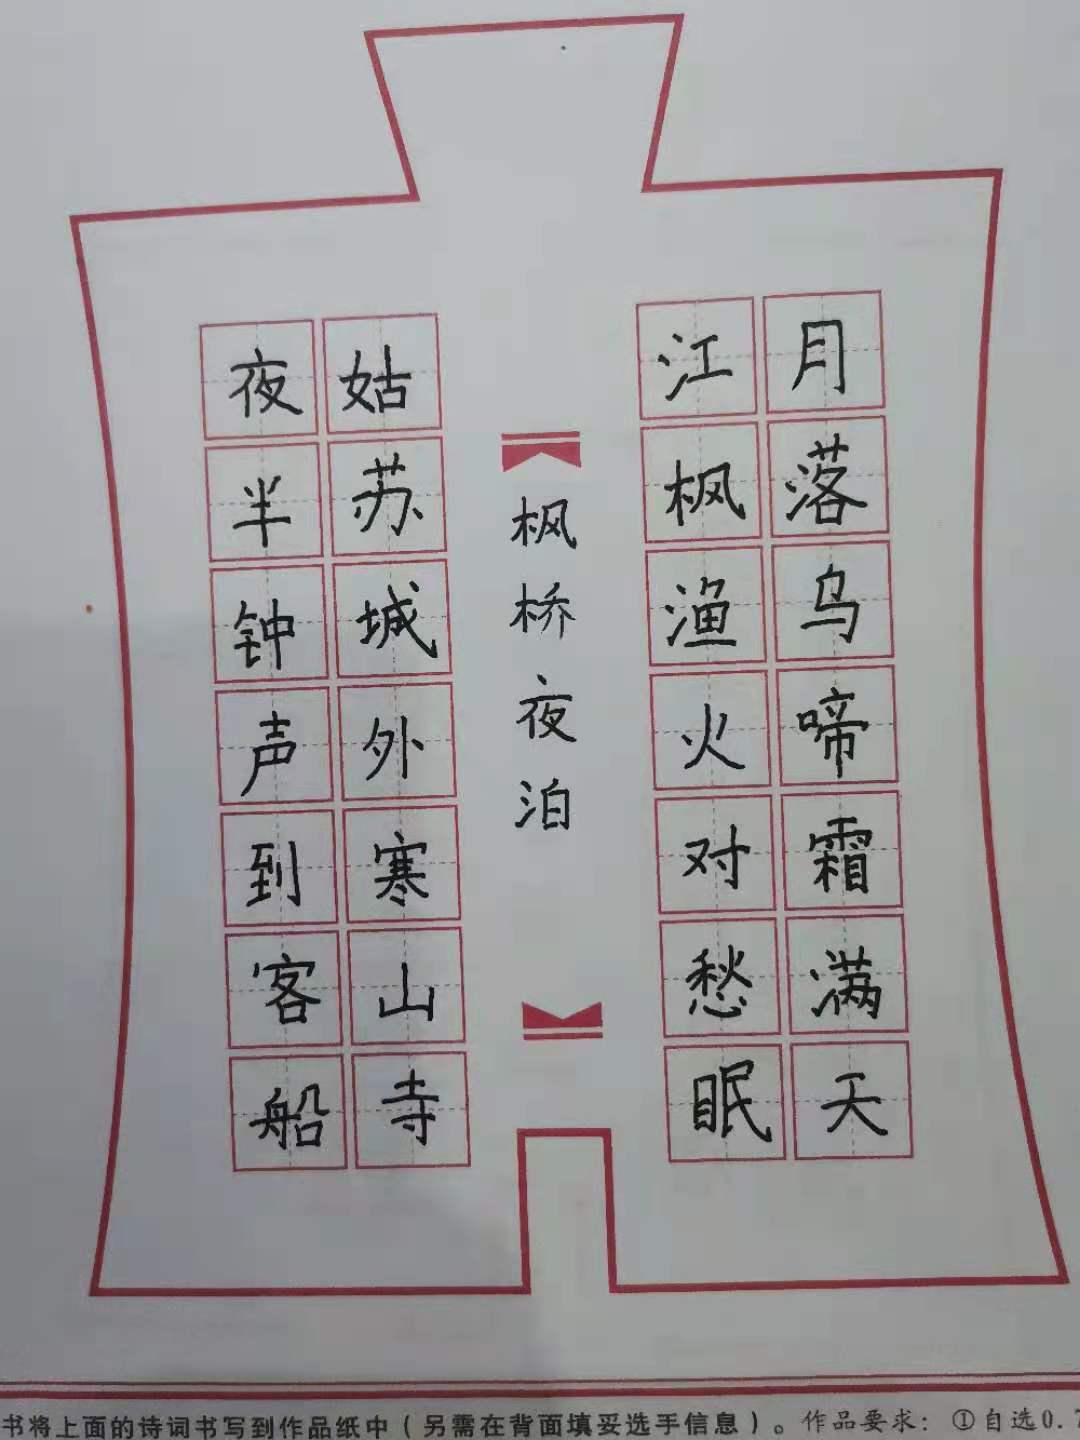 月落乌啼霜满天
江枫渔火对愁眠
枫桥夜泊
姑苏城外寒山寺
夜半钟声到客船
书将上面的诗词书写到作品纸中（另需在背面填妥选手信息）。作品要求：①自选0.7